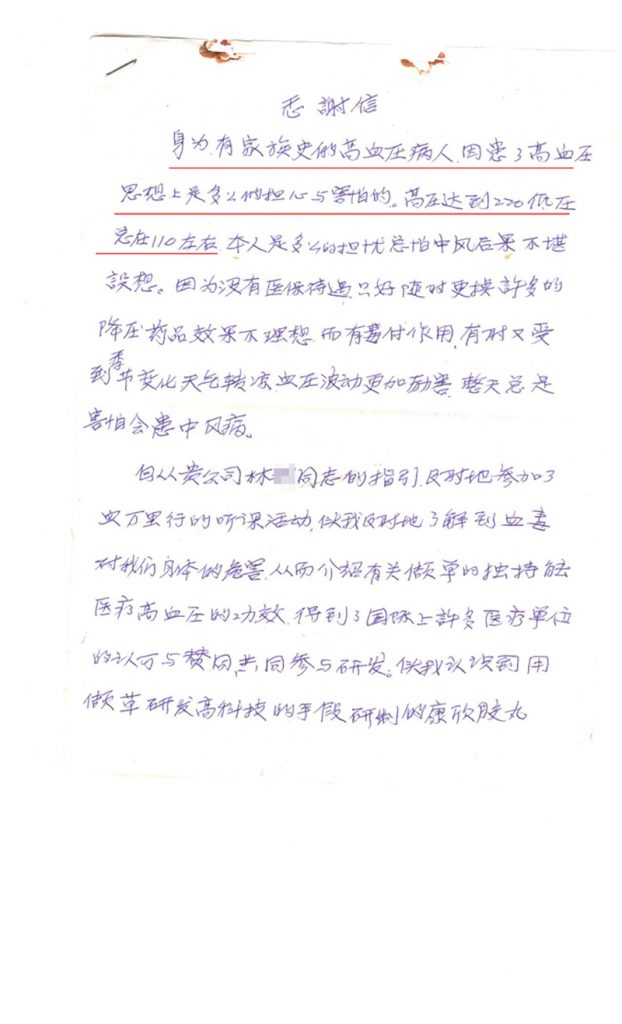 感謝信
身为有家族史的高血压病人,因患了高血压
思想上是多么的担心与害怕的。高压达到220低压
总在110左右,本人是多么的担忧总怕中风后果不堪
設想。因为没有医保待遇只好随时更换許多的
降压药品效果不理想,而有毒付作用,有时又受
到季节变化天气转凉,血压波动更加励害,整天总是
害怕会患中风病。
自从贵公司林 同志的指引,及时地参加了
血万里行的听课活动,使我及时地了解到血毒
对我们身体的危害,从而介绍有关 草的独特能
医疗高血压的功效,得到了国际上許多医疗单位
的认可与赞同,共同参与研发,使我认识到用
草研发高科技的手段研制的康欣胶丸